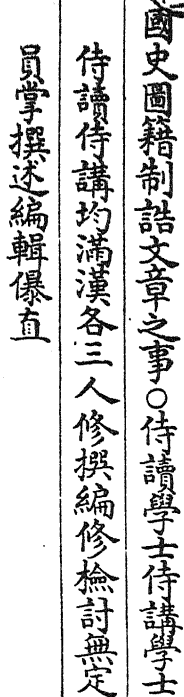 國史圖籍制誥文章之事○侍讀學士侍講學士
侍讀侍講均滿漢各三人修撰編修檢討無定
員掌撰述編輯㬥直